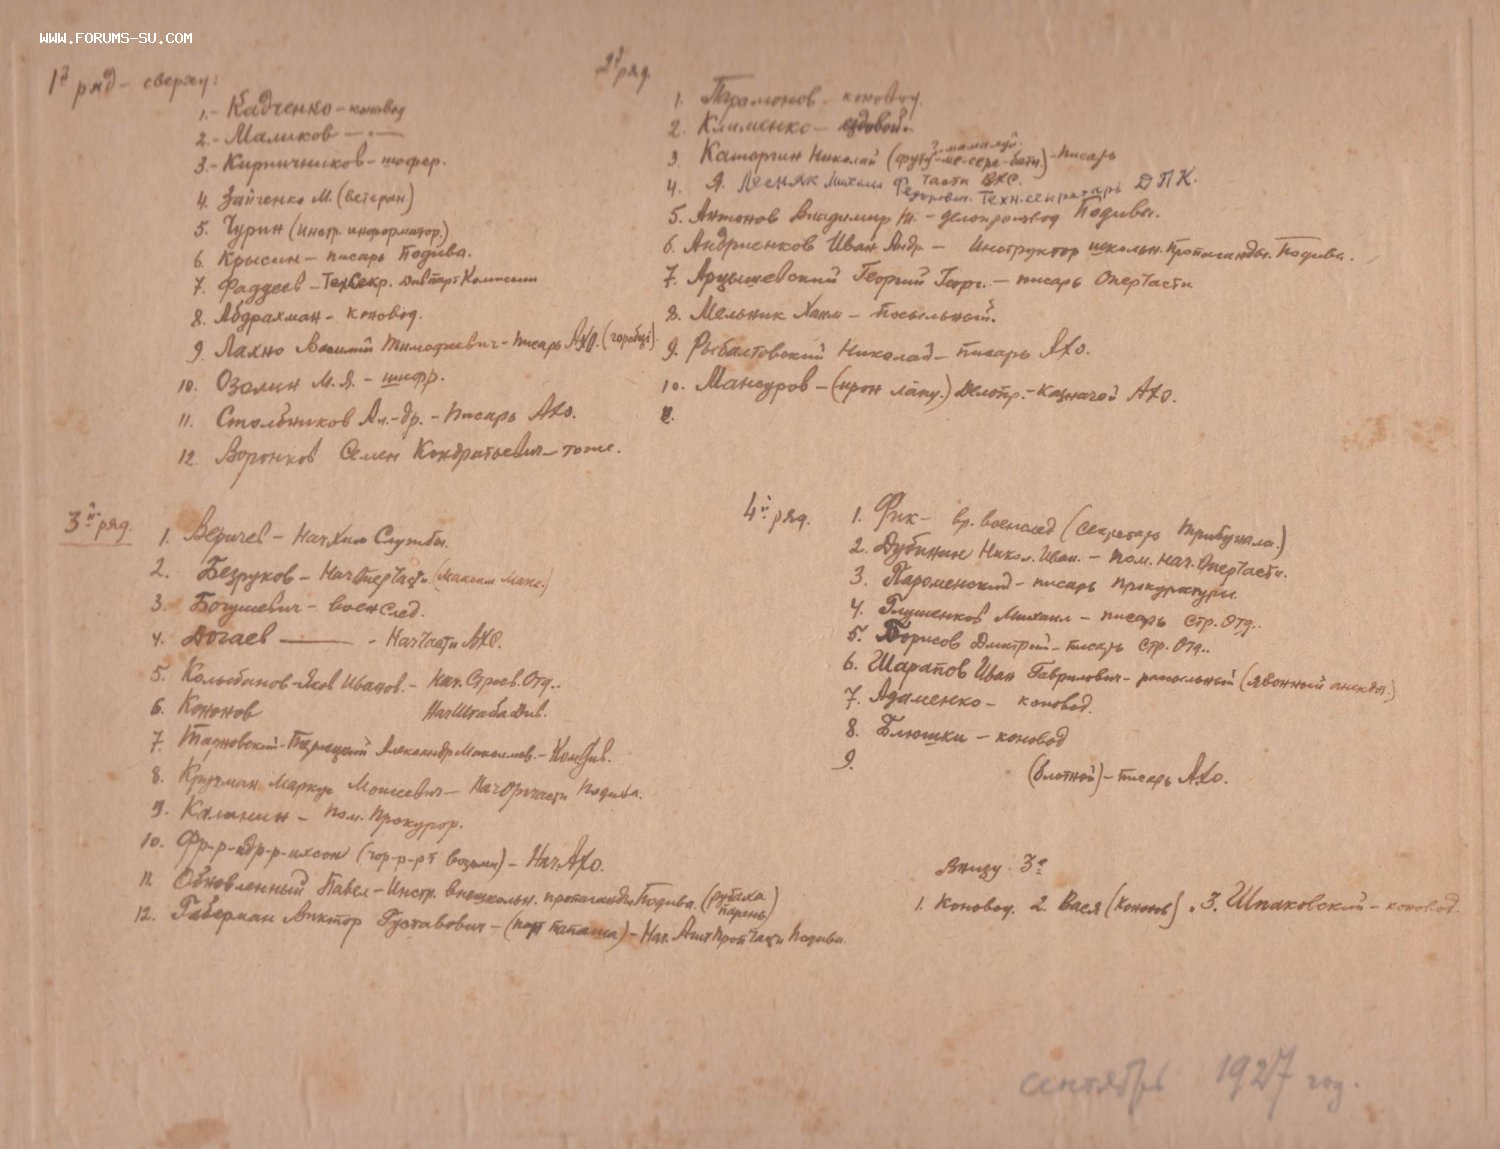 WWW.FORUMS-SU.COM
1й ряд - сверху:
1.- Кадченко - коновод
2.- Маликов — " —
3.- Кирпичников - шофер.
4. Зайченко М. (ветеран)
5. Чурин (Инстр. информатор.)
6. Крысин - писарь Подива.
7. Фаддеев - Тех.Секр. ДивпартКомиссии
8. Абдрахман - коновод.
9. Лахно Василий Тимофеевич - писарь АХО.
10. Озолин М.Я. - шифр.
11. Столбников Ал.-др. - писарь АХО.
12. Воронков Семен Кондратьевич - тоже.
2й ряд.
1. Парамонов - коновод.
2. Клименко - ездовой.
3. Каторгин Николай - писарь
4. Я. Лесняк Михаил Федоров. Техн. секретарь ДПК.
части ВХС.
5. Антонов Владимир - делопроизвод Подива.
6. Андриенков Иван Андр - Инструктор школьн. пропаганды Подива.
7. Арцышевский Георгий Георг. - писарь ОперЧасти
8. Мельник Хаим - посыльный.
9. Рыбалтовский Николай - писарь АХО.
10. Мансуров - Делопр.-казначей АХО.
11.
3й ряд.
1. Веричев - НачХим Службы.
2. Безруков - НачОперЧасти (Максим Макс.)
3. Богушевич - военслед.
4. Догаев — - НачЧасти АХО.
5. Колыбанов Яков Иванов. - Нач. Строев. Отд..
6. Кононов НачШтаба Див.
7. Тарновский- Александр Максимов. - Комдив.
8. Кручман Маркус Моисеевич - НачОргчасти Подива.
9. Калинин - пом. Прокурор.
10. Фр-р-идр-р-ихсон (чор-р-рт возьми) - Нач. АХО.
11. Обновленный Павел - Инстр. внешкольн. пропаганды Подива. (рубаха парень)
12. Габерман Виктор Густавович - (парт папаша) - Нач. АгитПропЧасти Подива
4й ряд.
1. Фик - вр. военслед (секретарь Трибунала.)
2. Дубинин Никол. Иван. - пом. нач. ОперЧасти.
3. Пароменский - писарь прокуратуры.
4. Глушенков Михаил - писарь Стр. Отд..
5. Борисов Дмитрий - писарь Стр. Отд..
6. Шарапов Иван Гаврилович - рассыльный (анекдот.)
7. Адаменко - коновод.
8. Блюшки - коновод
9. (блотной) - писарь АХО.
Внизу 3е
1. Коновод. 2. Вася (Кононов), 3. Шпаковский - коновод.
сентябрь 1927 год.